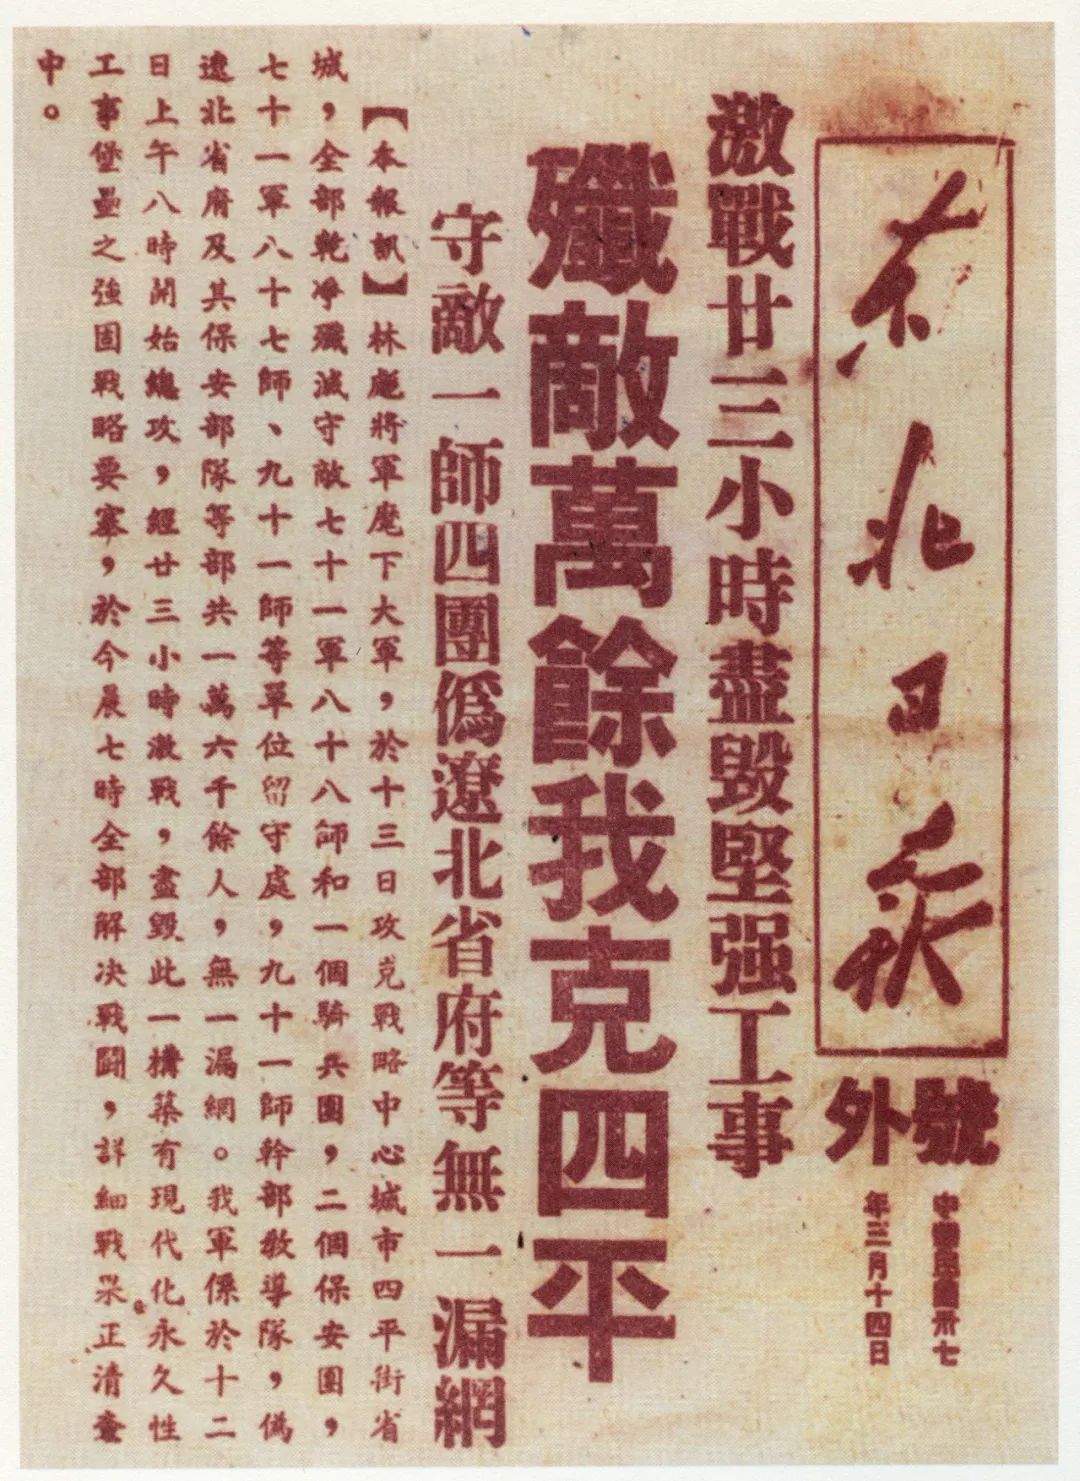 東北日報
號外
中華民國卅七
年三月十四日
激戰廿三小時盡毀堅强工事
殲敵萬餘我克四平
守敵一師四團僞遼北省府等無一漏網
【本報訊】林彪將軍麾下大軍，於十三日攻克戰略中心城市四平街省
城，全部乾净殲滅守敵七十一軍八十八師和一個騎兵團，二個保安團，
七十一軍八十七師、九十一師等單位留守處，九十一師幹部教導隊，僞
遼北省府及其保安部隊等部共一萬六千餘人，無一漏網。我軍係於十二
日上午八時開始總攻，經廿三小時激戰，盡毀此一構築有現代化永久性
工事堡壘之強固戰略要塞，於今晨七時全部解决戰鬪，詳細戰果正清查
中。